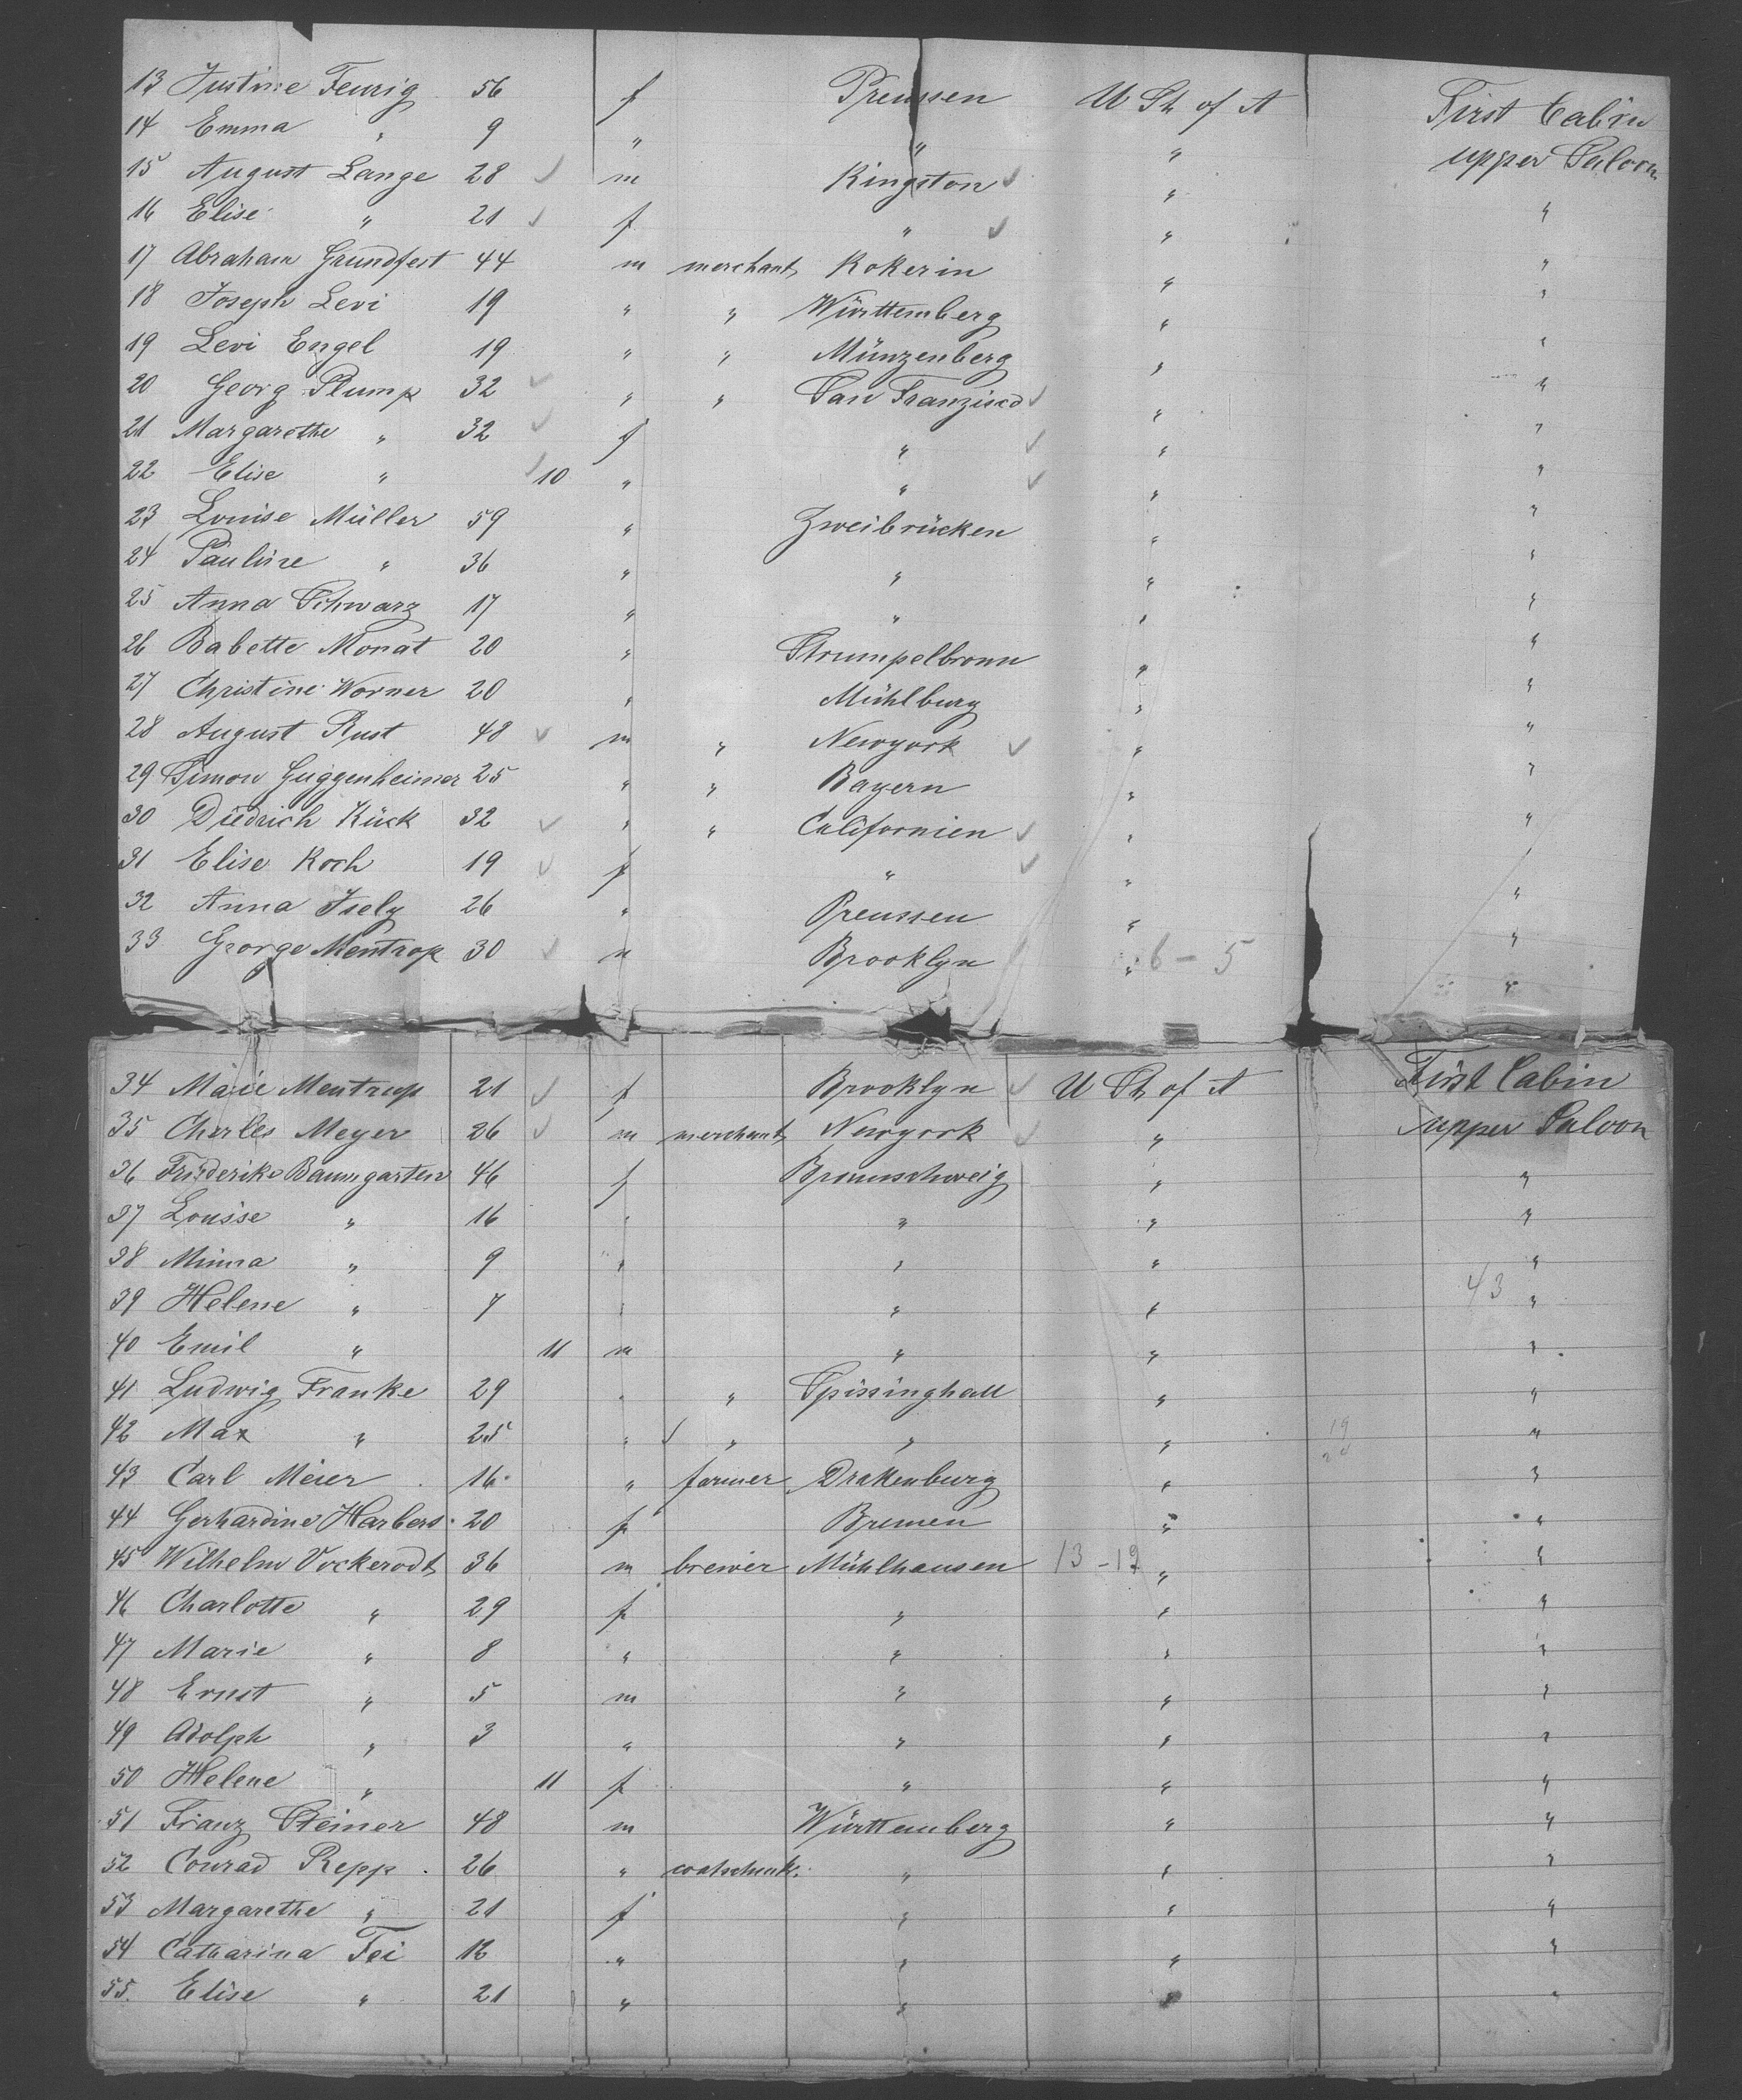 13 Justine Feurig 56 f Preussen U St of A First Cabin
14 Emma " 9 " " " upper Saloon
15 August Lange 28 m Kingston " "
16 Elise " 21 f " " "
17 Abraham Grundfest 44 m merchant Kokerin " "
18 Joseph Levi 19 " " Württemberg " "
19 Levi Engel 19 " " Münzenberg " "
20 Georg Plump 32 " " San Franzisco " "
21 Margarethe " 32 f " " "
22 Elise " 10 " " " "
23 Louise Müller 59 " Zweibrücken " "
24 Pauline " 36 " " " "
25 Anna Schwarz 17 " " " "
26 Babette Monat 20 " Strumpelbronn " "
27 Christine Worner 20 " Mühlburg " "
28 August Rust 48 m " Newyork " "
29 Simon Guggenheimer 25 " " Bayern " "
30 Diedrich Kück 32 " " Californien " "
31 Elise Koch 19 f " " "
32 Anna Isely 26 " Preussen " "
33 George Mentrop 30 m Brooklyn " 6-5 "
34 Marie Mentrup 21 f Brooklyn U St of A First Cabin
35 Charles Meyer 26 m merchant Newyork " upper Saloon
36 Friederike Baumgarten 46 f Braunschweig " "
37 Louise " 16 " " " "
38 Minna " 9 " " " "
39 Helene " 7 " " " 43 "
40 Emil " 11 m " " "
41 Ludwig Franke 29 " " Spissinghall " "
42 Max " 25 " " " " "
43 Carl Meier 16 " farmer Drakenburg " "
44 Gerhardine Harbers 20 f Bremen " "
45 Wilhelm Vockerodt 36 m brewer Mühlhausen 13-19 " "
46 Charlotte " 29 f " " "
47 Marie " 8 " " " "
48 Ernst " 5 m " " "
49 Adolph " 3 " " " "
50 Helene " 11 f " " "
51 Franz Steiner 48 m Württemberg " "
52 Conrad Repp 26 " " " "
53 Margarethe " 21 f " " "
54 Catharina Fei " " " "
55 Elise " 21 " " " "